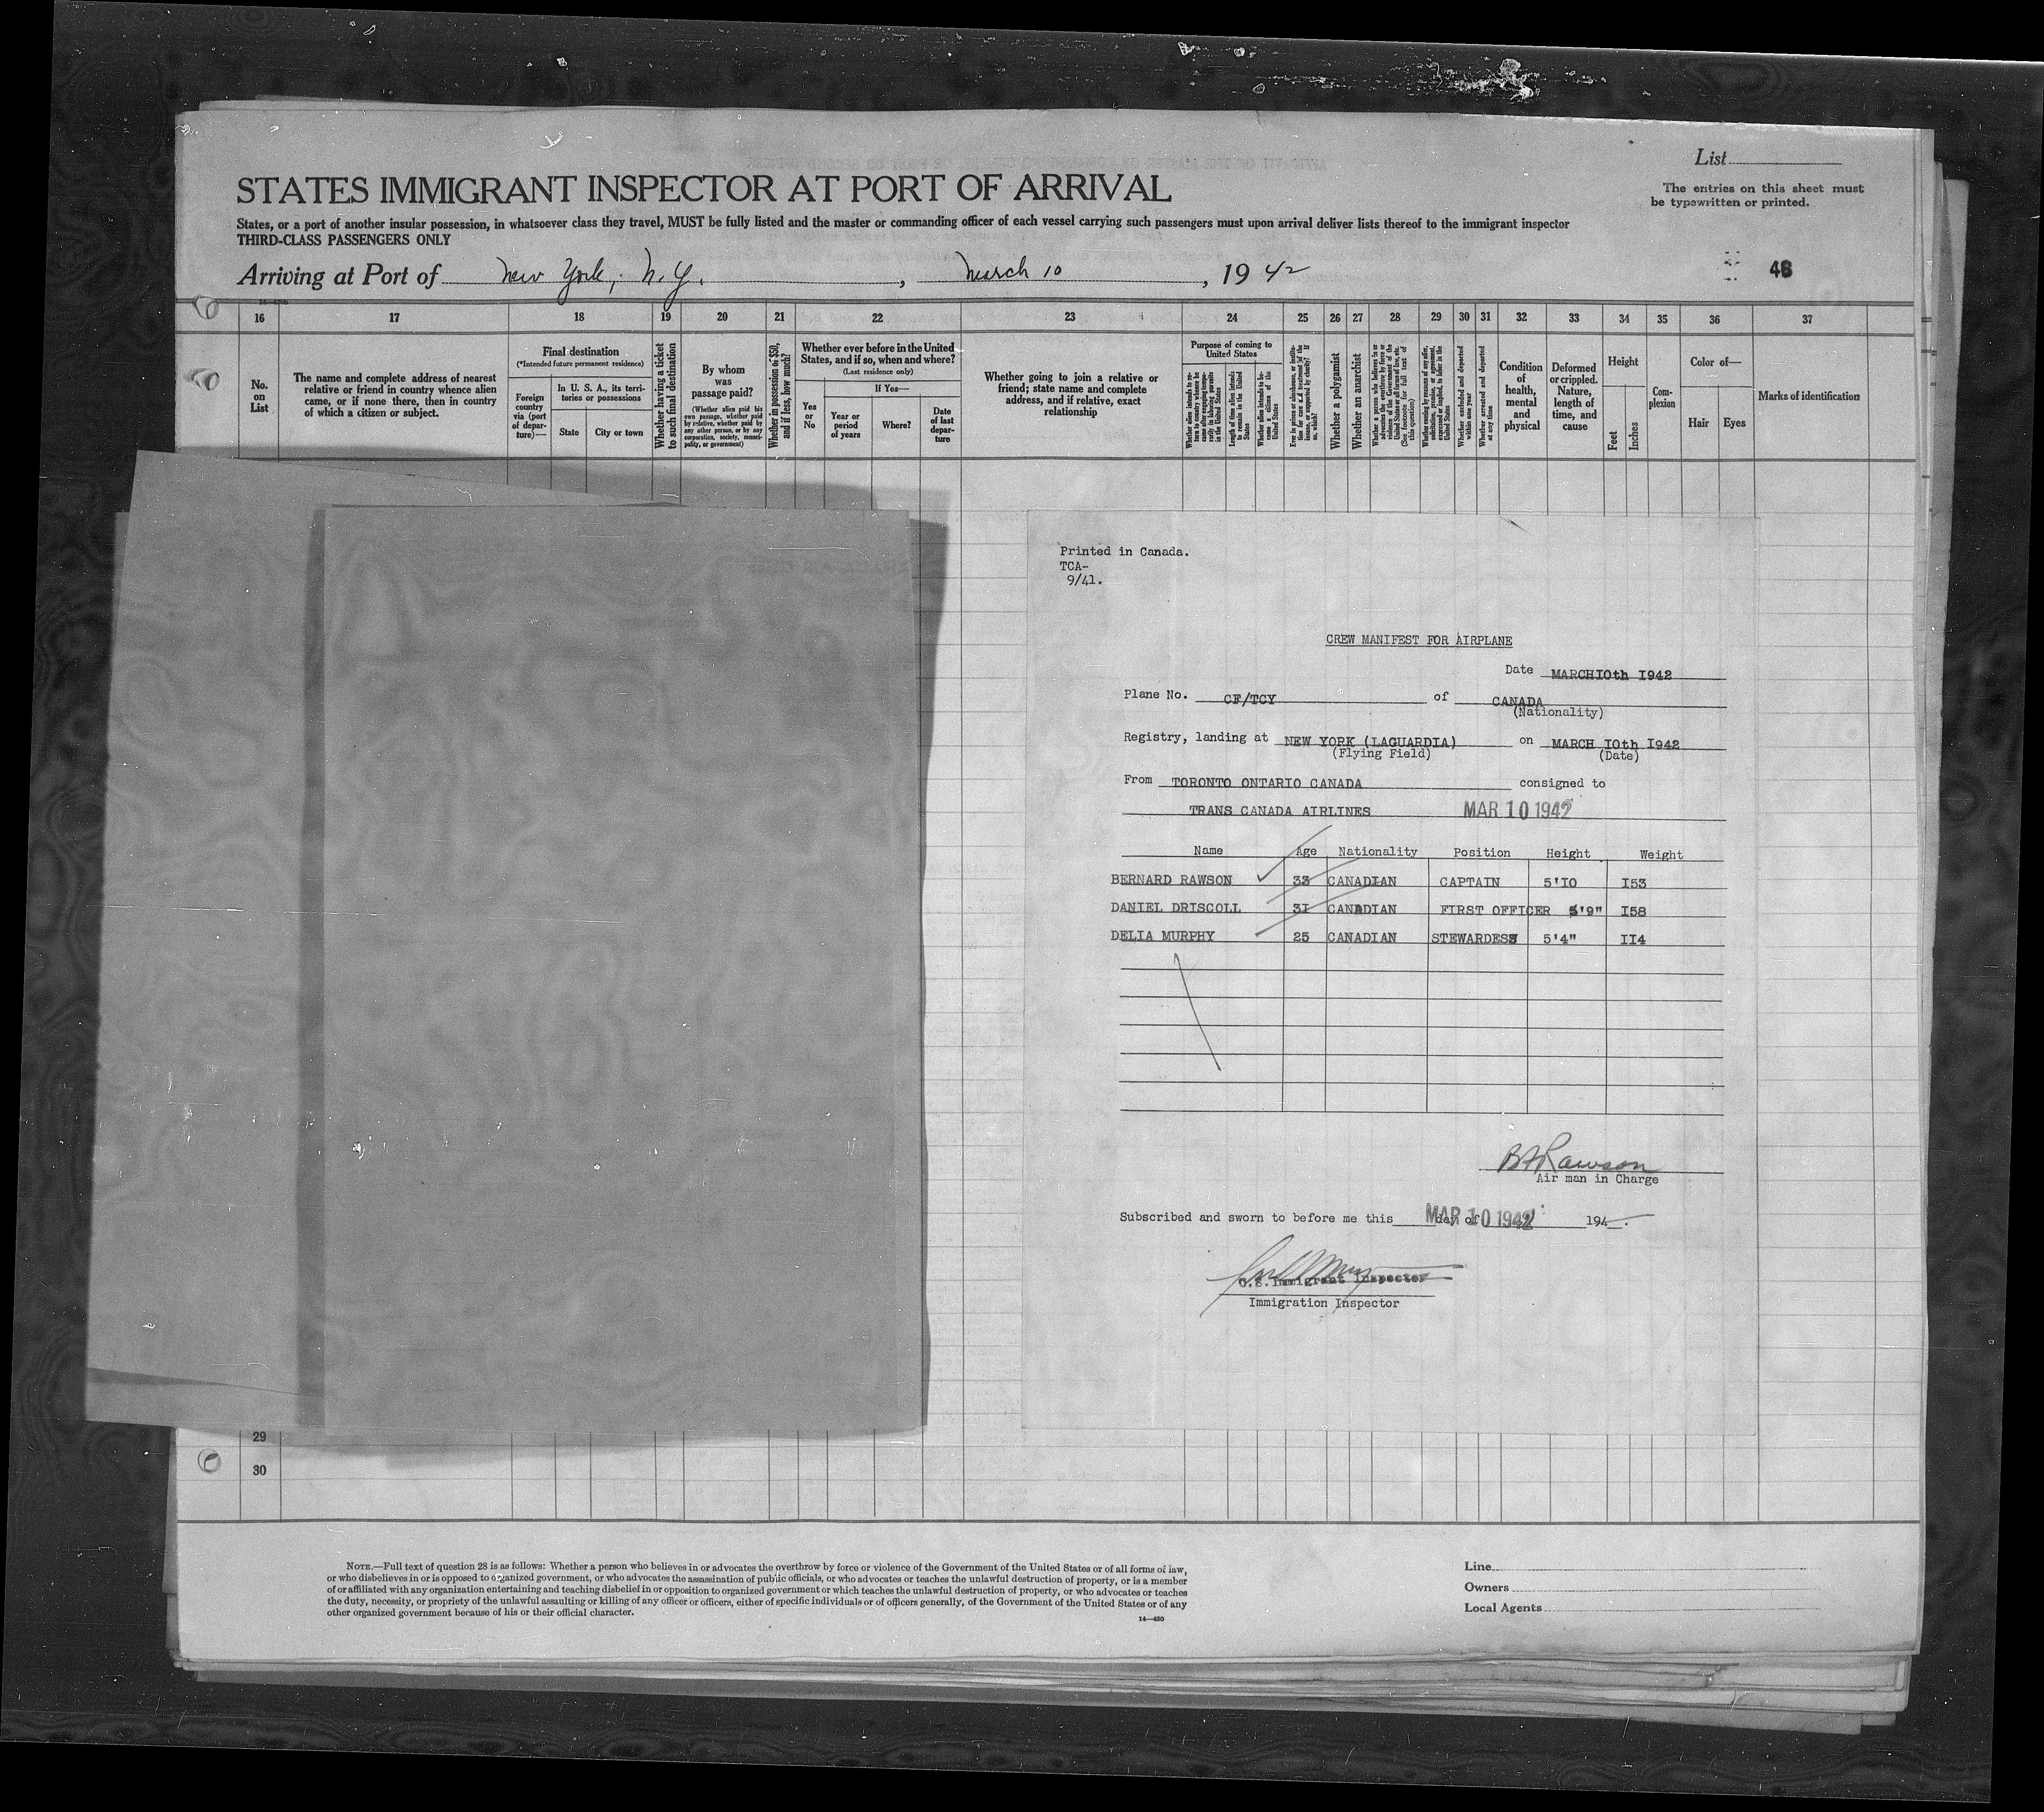 List
STATES IMMIGRANT INSPECTOR AT PORT OF ARRIVAL
The entries on this sheet must
be typewritten or printed.
States, or a port of another insular possession, in whatsoever class they travel, MUST be fully listed and the master or commanding officer of each vessel carrying such passengers must upon arrival deliver lists thereof to the immigrant inspector
THIRD-CLASS PASSENGERS ONLY
Arriving at Port of New York, N.Y., March 10, 1942
46
16 17 18 19 20 21 22 23 24 25 26 27 28 29 30 31 32 33 34 35 36 37
No.
on
List
The name and complete address of nearest
relative or friend in country whence alien
came, or if none there, then in country
of which a citizen or subject.
Final destination
(*Intended future permanent residence)
Foreign
country
via (port
of depar-
ture)—
In U. S. A., its terri-
tories or possessions
State
City or town
Whether having a ticket
to such final destination
By whom
was
passage paid?
(Whether alien paid his
own passage, whether paid
by relative, whether paid by
any other person, or by any
corporation, society, munici-
pality, or government)
Whether in possession of $50,
and if less, how much?
Whether ever before in the United
States, and if so, when and where?
(Last residence only)
Yes
or
No
If Yes—
Year or
period
of years
Where?
Date
of last
depar-
ture
Whether going to join a relative or
friend; state name and complete
address, and if relative, exact
relationship
Purpose of coming to
United States
Length of time alien intends
to remain in the United
States
Whether a polygamist
Whether an anarchist
Whether excluded and deported
within one year
Whether arrested and deported
at any time
Condition
of
health,
mental
and
physical
Deformed
or crippled.
Nature,
length of
time, and
cause
Height
Feet
Inches
Com-
plexion
Color of—
Hair
Eyes
Marks of identification
Printed in Canada.
TCA-
9/41.
CREW MANIFEST FOR AIRPLANE
Date MARCHIOth I942
Plane No. CF/TCY of CANADA
(Nationality)
Registry, landing at NEW YORK (LAGUARDIA) on MARCH IOth I942
(Flying Field) (Date)
From TORONTO ONTARIO CANADA consigned to
TRANS CANADA AIRLINES MAR 10 1942
Name Age Nationality Position Height Weight
BERNARD RAWSON 33 CANADIAN CAPTAIN 5'IO I53
DANIEL DRISCOLL 3I CANADIAN FIRST OFFICER 5'9" I58
DELIA MURPHY 25 CANADIAN STEWARDESS 5'4" II4
B A Rawson
Air man in Charge
Subscribed and sworn to before me this day of MAR 10 1942 194 .
U.S. Immigrant Inspector
Immigration Inspector
29
30
NOTE.—Full text of question 28 is as follows: Whether a person who believes in or advocates the overthrow by force or violence of the Government of the United States or of all forms of law,
or who disbelieves in or is opposed to organized government, or who advocates the assassination of public officials, or who advocates or teaches the unlawful destruction of property, or is a member
of or affiliated with any organization entertaining and teaching disbelief in or opposition to organized government or which teaches the unlawful destruction of property, or who advocates or teaches
the duty, necessity, or propriety of the unlawful assaulting or killing of any officer or officers, either of specific individuals or of officers generally, of the Government of the United States or of any
other organized government because of his or their official character.
14—430
Line
Owners
Local Agents